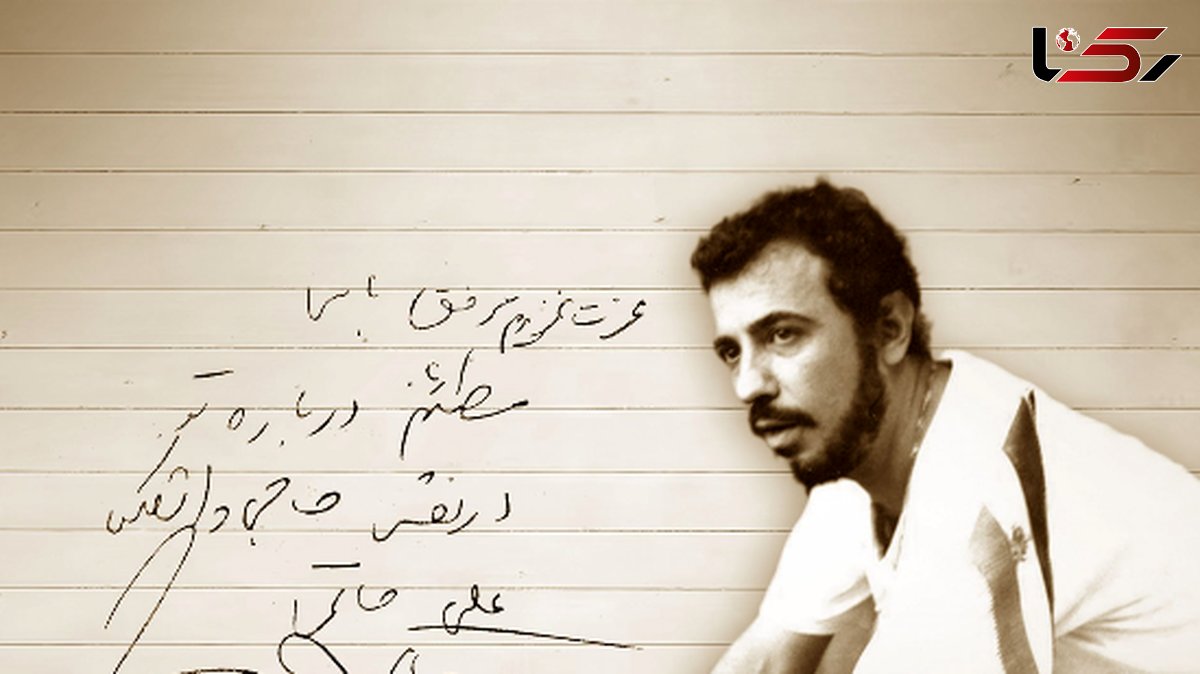 رکنا
عزت عزیزم موفق باشی
مطمئنم درباره تو
در نقش حاجی واشنگتن
علی حاتمی